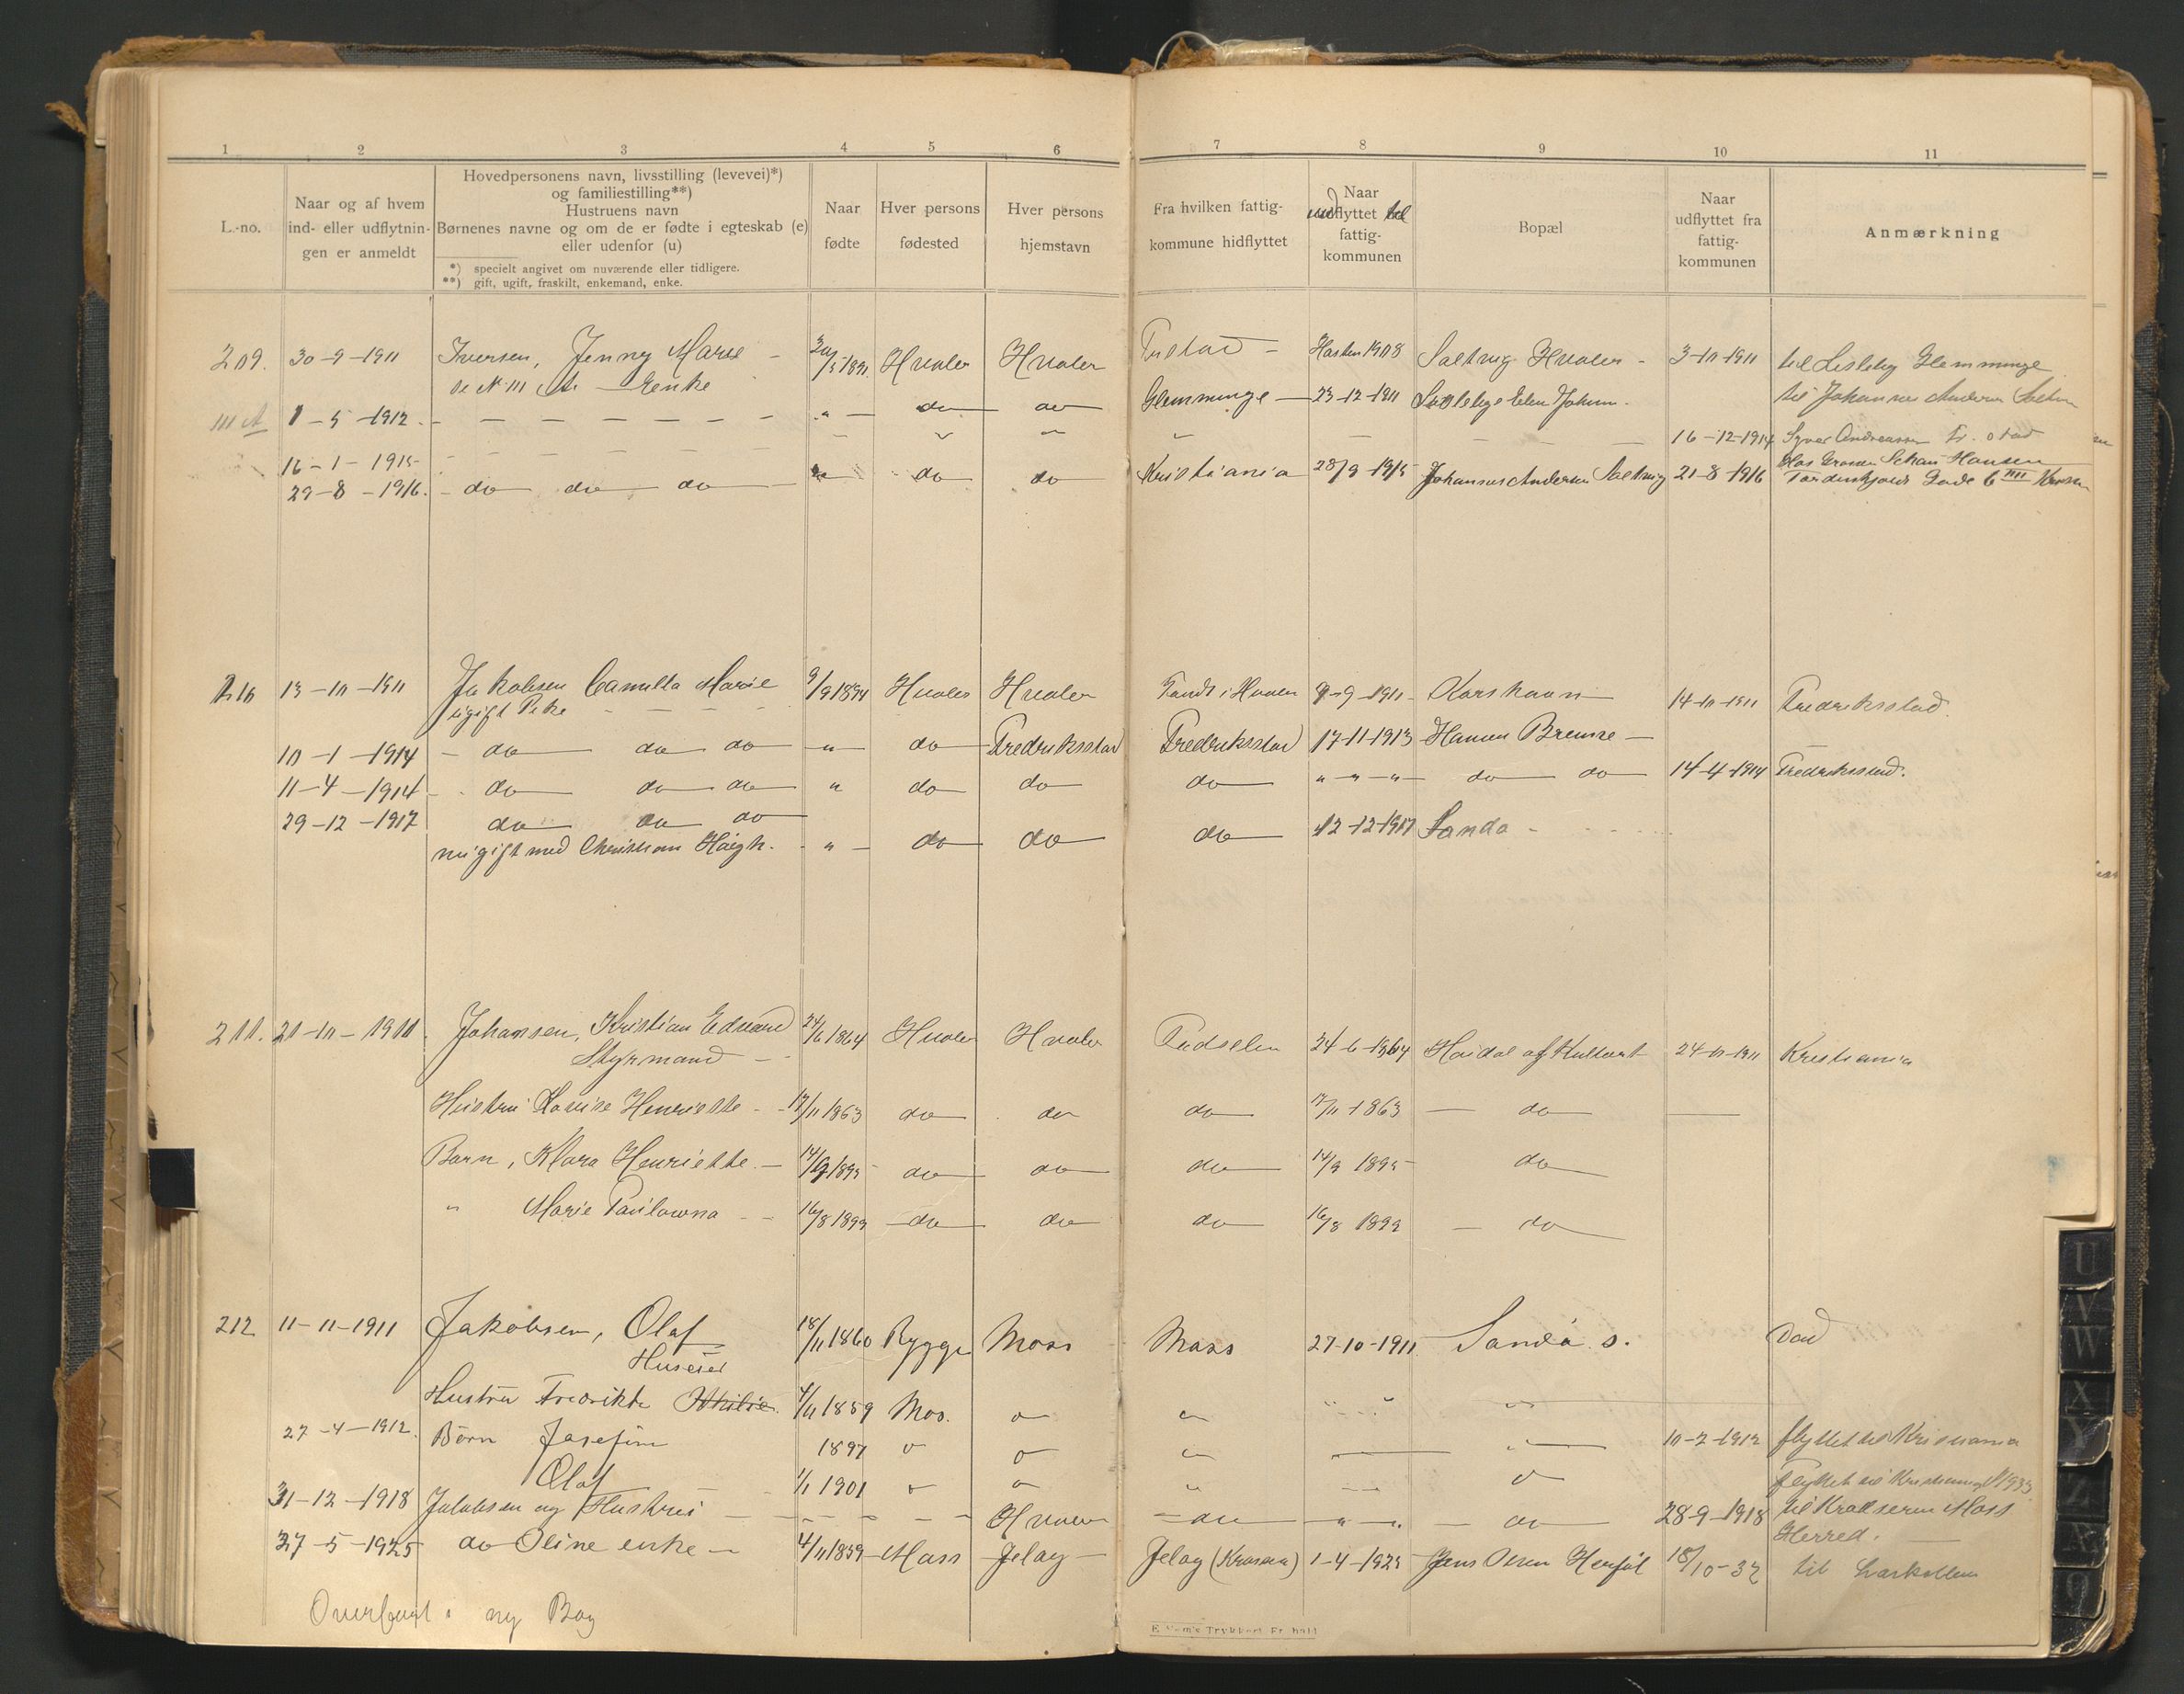 1 2 3 4 5 6 7 8 9 10 11
L.-no.
Naar og af hvem
ind- eller udflytnin-
gen er anmeldt
Hovedpersonens navn, livsstilling (levevei)*)
og familiestilling**)
Hustruens navn
Børnenes navne og om de er fødte i egteskab (e)
eller udenfor (u)
*) specielt angivet om nuværende eller tidligere.
**) gift, ugift, fraskilt, enkemand, enke.
Naar
fødte
Hver persons
fødested
Hver persons
hjemstavn
Fra hvilken fattig-
kommune hidflyttet
Naar
indflyttet til
fattig-
kommunen
Bopæl
Naar
udflyttet fra
fattig-
kommunen
Anmærkning
209. 30-9-1911 Iversen, Jenny Marie - Hvaler Hvaler Høsten 1908 Hvaler - 3-10-1911 til Lisleby Glemminge
Enke
111 A 1-5-1912 - - - - - - - " - do do Glemminge - 23-12-1911 til Johannes Andersen
16-1-1915 - - - - - 16-12-1914 Syver Andreassen Fr.stad
29-8-1916. - do do do - do do Kristiania 28/9-1915 Johannes Andersen 21-8-1916 Hos Hansen
Tordenskjolds Gade 6 IIII
210 13-10-1911 Jakobsen Camilla Marie 9/9 1894 Hvaler Hvaler 9-9-1911- 14-10-1911 Fredriksstad.
ugift Pike - - - -
10-1-1914 - do do do - " - do Fredriksstad Fredriksstad 17-11-1913 Brenne -
11-4-1914 - do do do " do do do " - " - " - do do 14-4-1914 Fredriksstad.
29-12-1917 do do do
nu gift med Christian - " - do do do 12-12-1917 Sandø -
211. 21-10-1911. Johansen, Kristian Edvard 24/6 1864 Hvaler Hvaler Fødselen 24-6-1864 24-10-1911 Kristiania
Styrmand -
Hustru Lovise Henriette - 17/11 1863 do do do 17/11 1863 - do -
Barn, Klara Henriette - 14/9 1895 do do do 14/9 1895 do
" Marie Paulowna - 16/8 1899 do do do 16/8 1899 - do
212 11-11-1911 Jakobsen, Olaf 18/11 1860 Rygge Moss Moss 27-10-1911 Sandø s. Død
Huseier
Hustru Fredrikke 4/11 1859 Mos. " "
27-4-1912. Børn Josefine 1897 " " " 10-2-1912 flyttet til Kristiania
Olaf 1/1 1901 " " "
31-12-1918 Jakobsen og Hustru - - - - - Hvaler - do - " - " - do 28-9-1918 Moss
Herred.
27-5-1925 do Oline enke - 4/11 1859 - Moss - Jeløy - Jeløy 1-4-1925 Jens Olsen 18/10-32 til Larkollen
Overført i ny Bog
U
V
W
X
Y
Z
Æ
Ø